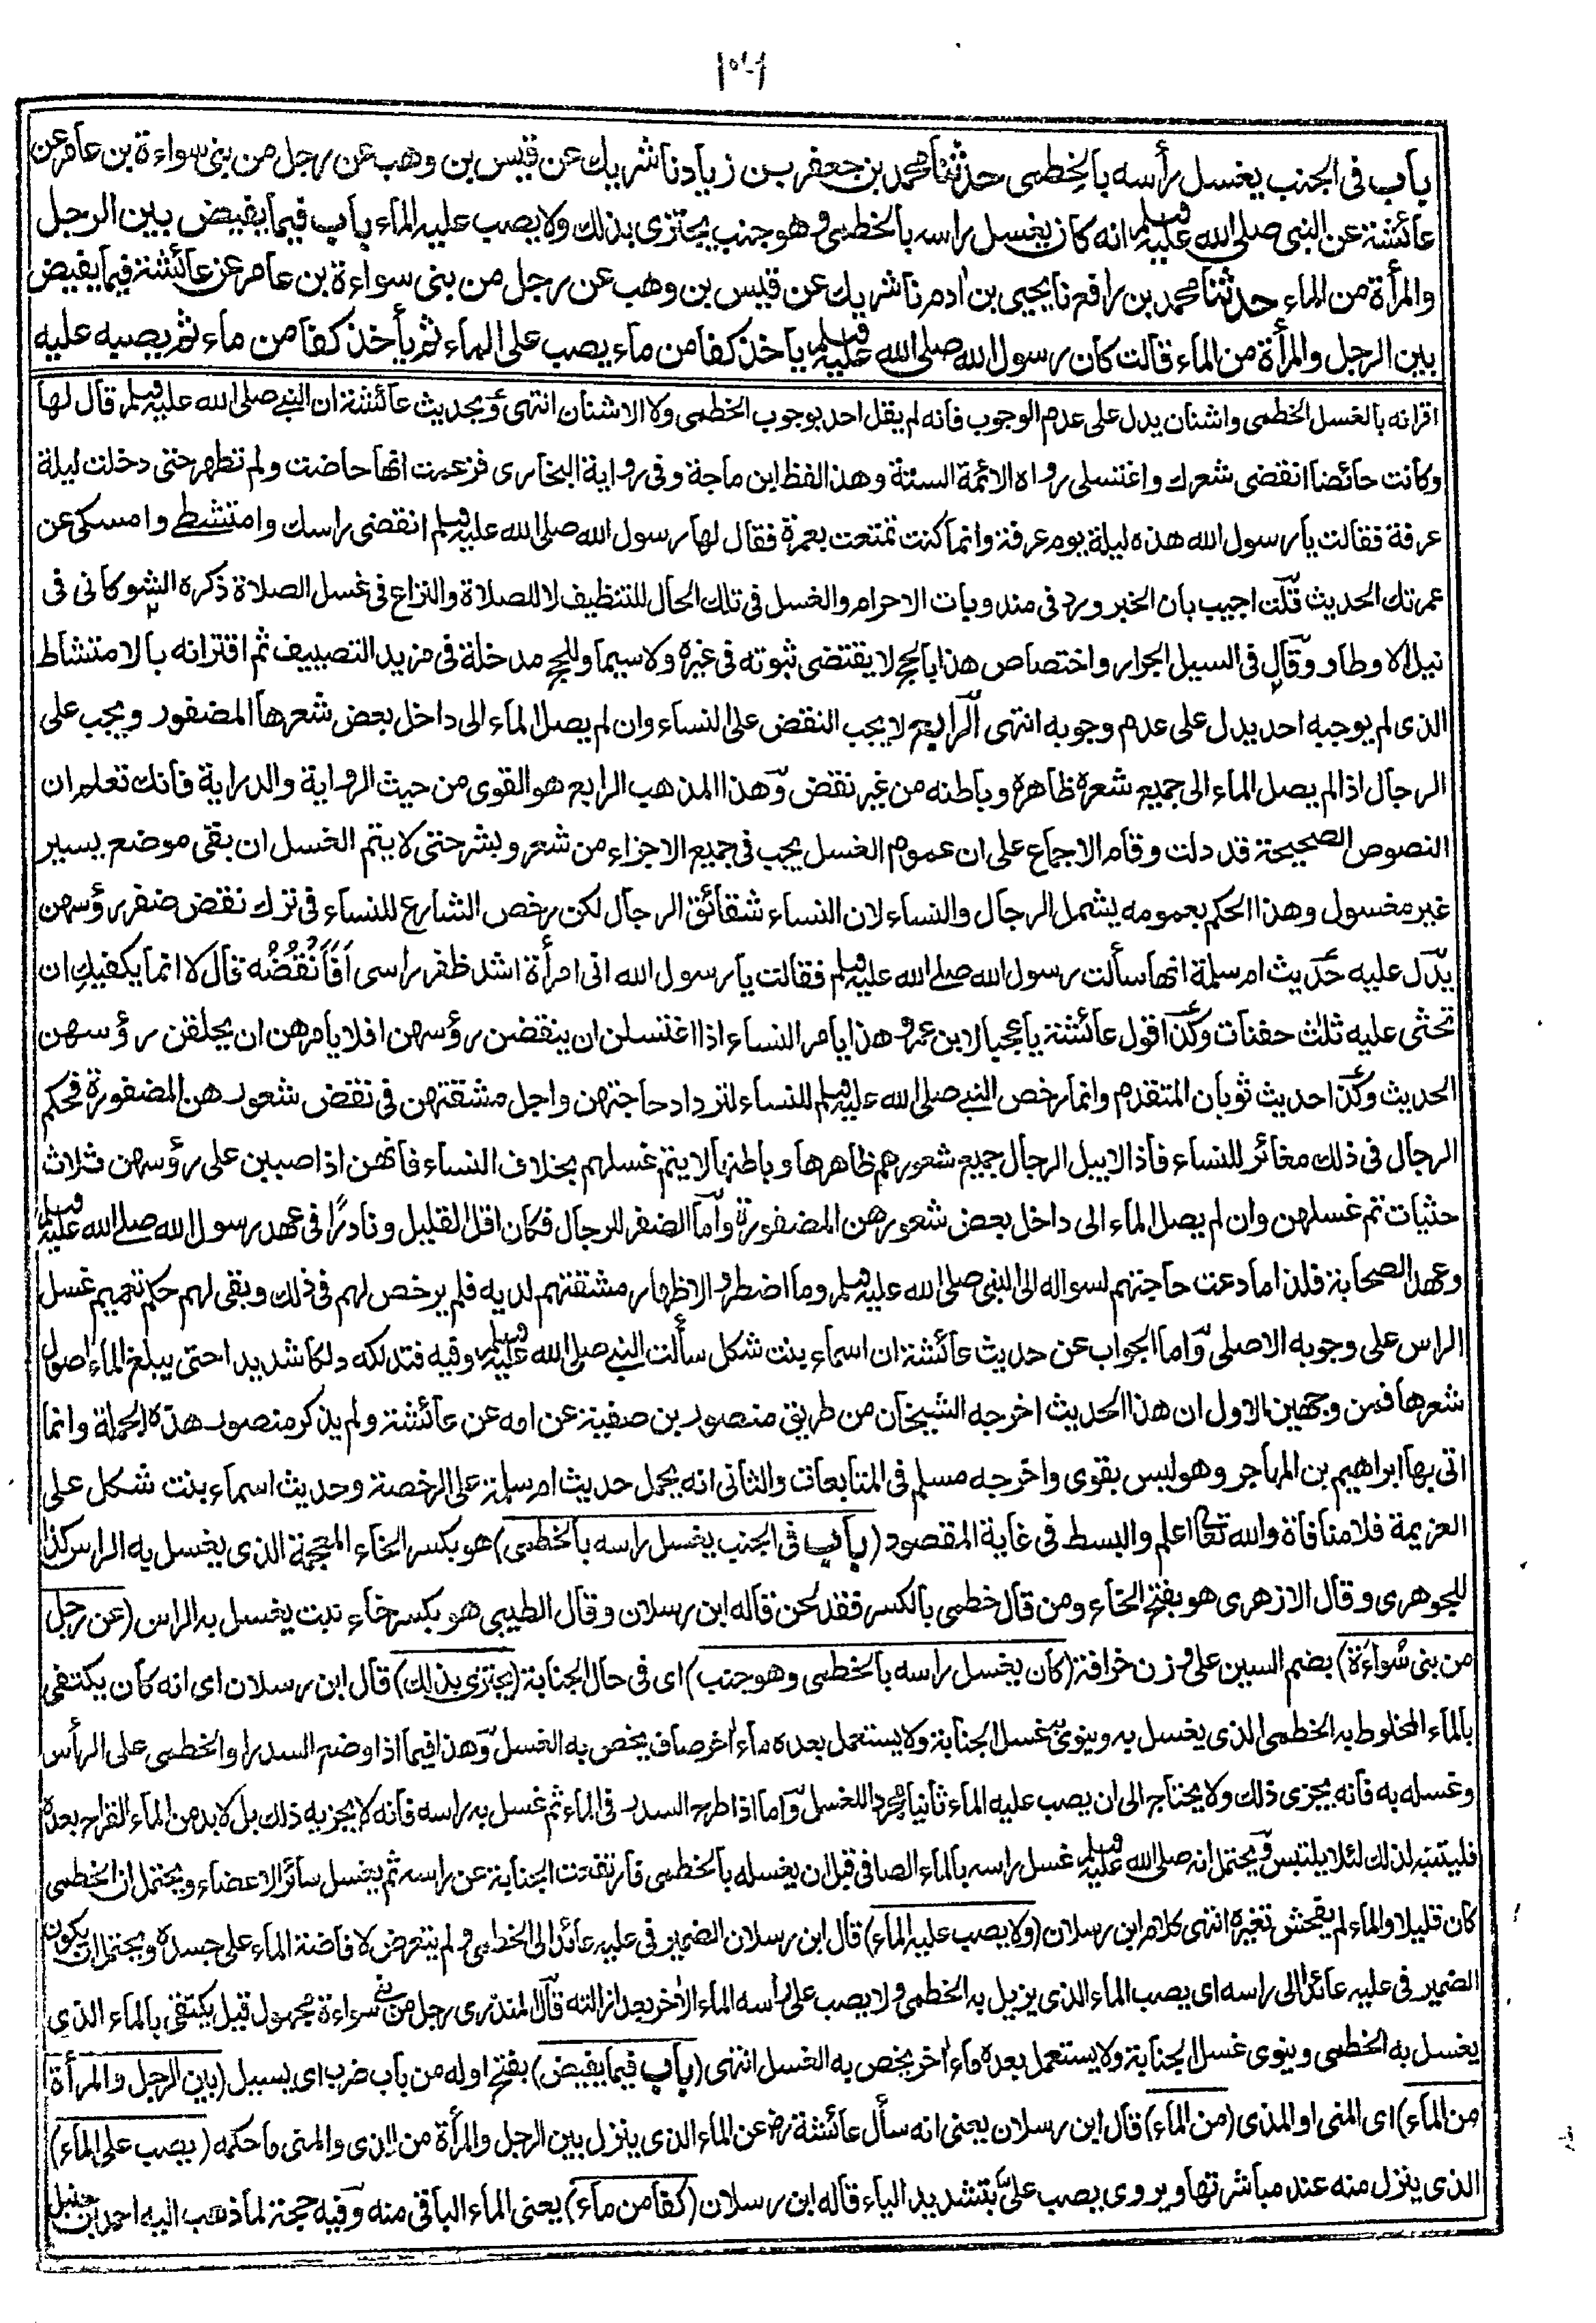 ١٠٢
باب فى الجنب يغسل رأسه بالخِطمى حدثنا محمد بن جعفر بن زياد نا شريك عن قيس بن وهب عن رجل من بنى سواءة بن عامر عن
عائشة عن النبى صلى الله عليه وسلم انه كان يغسل راسه بالخطمى وهو جنب يجتزى بذلك ولا يصب عليه الماء باب فيما يفيض بين الرجل
والمرأة من الماء حدثنا محمد بن رافع نا يحيى بن اٰدم نا شريك عن قيس بن وهب عن رجل من بنى سواءة بن عامر عن عائشة فيما يفيض
بين الرجل والمرأة من الماء قالت كان رسول الله صلى الله عليه وسلم ياخذ كفا من ماء يصب على الماء ثم يأخذ كفا من ماء ثم يصبه عليه
اقرانه بالغسل الخطمى واشنان يدل على عدم الوجوب فانه لم يقل احد بوجوب الخطمى ولا الاشنان انتهى وبحديث عائشة ان النبى صلى الله عليه وسلم قال لها
وكانت حائضا انقضى شعرك واغتسلى رواه الائمة الستة وهذا لفظ ابن ماجة وفى رواية البخارى فزعمت انها حاضت ولم تطهر حتى دخلت ليلة
عرفة فقالت يا رسول الله هذه ليلة يوم عرفة وانما كنت تمتعت بعمرة فقال لها رسول الله صلى الله عليه وسلم انقضى راسك وامتشطى وامسكى عن
عمرتك الحديث قلت اجيب بان الخبر ورد فى مندوبات الاحرام والغسل فى تلك الحال للتنظيف لا للصلاة والنزاع فى غسل الصلاة ذكره الشوكانى فى
نيل الاوطار وقال فى السيل الجرار واختصاص هذا بالحج لا يقتضى ثبوته فى غيره ولا سيما وللحج مدخلة فى مزيد التصييف ثم اقترانه بالامتشاط
الذى لم يوجبه احد يدل على عدم وجوبه انتهى الرابع لا يجب النقض على النساء وان لم يصل الماء الى داخل بعض شعرها المضفور ويجب على
الرجال اذا لم يصل الماء الى جميع شعره ظاهره وباطنه من غير نقض وهذا المذهب الرابع هو القوى من حيث الرواية والدراية فانك تعلم ان
النصوص الصحيحة قد دلت وقام الاجماع على ان عموم الغسل يجب فى جميع الاجزاء من شعر وبشر حتى لا يتم الغسل ان بقى موضع يسير
غير مغسول وهذا الحكم بعمومه يشمل الرجال والنساء لان النساء شقائق الرجال لكن رخص الشارع للنساء فى ترك نقض ضفر رؤسهن
يدل عليه حديث ام سلمة انها سألت رسول الله صلى الله عليه وسلم فقالت يا رسول الله انى امرأة اشد ظفر راسى اَفَاَنْقُضُه قال لا انما يكفيكِ ان
تحثى عليه ثلٰث حفنات وكذا قول عائشة يا عجبا لابن عمرو هذا يامر النساء اذا اغتسلن ان ينقضن رؤسهن افلا يامرهن ان يحلقن رؤسهن
الحديث وكذا حديث ثوبان المتقدم وانما رخص النبى صلى الله عليه وسلم للنساء لتزداد حاجتهن واجل مشقتهن فى نقض شعورهن المضفورة فحكم
الرجال فى ذلك مغائر للنساء فاذا لا يبل الرجال جميع شعورهم ظاهرها وباطنها لا يتم غسلهم بخلاف النساء فانهن اذا صببن على رؤسهن ثلاث
حثيات تم غسلهن وان لم يصل الماء الى داخل بعض شعورهن المضفورة واما الضفر للرجال فكان اقل القليل ونادرًا فى عهد رسول الله صلى الله عليه وسلم
وعهد الصحابة فلذا ما دعت حاجتهم لسواله الى النبى صلى الله عليه وسلم وما اضطروا لاظهار مشقتهم لديه فلم يرخص لهم فى ذلك وبقى لهم حكم تعميم غسل
الراس على وجوبه الاصلى واما الجواب عن حديث عائشة ان اسماء بنت شكل سألت النبى صلى الله عليه وسلم وفيه فتدلكه دلكا شديدا حتى يبلغ الماء اصول
شعرها فمن وجهين الاول ان هذا الحديث اخرجه الشيخان من طريق منصور بن صفية عن امه عن عائشة ولم يذكر منصور هذه الجملة وانما
اتى بها ابراهيم بن المهاجر وهو ليس بقوى واخرجه مسلم فى المتابعات والثانى انه يحمل حديث ام سلمة على الرخصة وحديث اسماء بنت شكل على
العزيمة فلا منافاة والله تعالى اعلم والبسط فى غاية المقصود (باب فى الجنب يغسل راسه بالخطمى) هو بكسر الخاء المعجمة الذى يغسل به الراس كذا
للجوهرى وقال الازهرى هو بفتح الخاء ومن قال خطمى بالكسر فقد لحن قاله ابن رسلان وقال الطيبى هو بكسر خاء نبت يغسل به الراس (عن رجل
من بنى سُواءة) بضم السين على وزن خرافة (كان يغسل راسه بالخطمى وهو جنب) اى فى حال الجنابة (يجتزى بذلك) قال ابن رسلان اى انه كان يكتفى
بالماء المخلوط به الخطمى الذى يغسل به وينوى به غسل الجنابة ولا يستعمل بعده ماء اٰخر صاف يخص به الغسل وهذا فيما اذا وضع السدر او الخطمى على الرأس
وغسله به فانه يجزى ذلك ولا يحتاج الى ان يصب عليه الماء ثانيا مجردا للغسل واما اذا طرح السدر فى الماء ثم غسل به راسه فانه لا يجزيه ذلك بل لا بد من الماء القراح بعده
فليتنبه لذلك لئلا يلتبس ويحتمل انه صلى الله عليه وسلم غسل راسه بالماء الصافى قبل ان يغسله بالخطمى فارتفعت الجنابة عن راسه ثم يغسل سائر الاعضاء ويحتمل ان الخطمى
كان قليلا والماء لم يفحش تغيره انتهى كلام ابن رسلان (ولا يصب عليه الماء) قال ابن رسلان الضمير فى عليه عائد الى الخطمى ولم يتعرض لافاضة الماء على جسده ويحتمل ان يكون
الضمير فى عليه عائدا الى راسه اى يصب الماء الذى يزيل به الخطمى ولا يصب على راسه الماء الاٰخر بعد ازالته قال المنذرى رجل من بنى سواءة مجهول قيل يكتفى بالماء الذى
يغسل به الخطمى وينوى غسل الجنابة ولا يستعمل بعده ماء اٰخر يخص به الغسل انتهى (باب فيما يفيض) بفتح اوله من باب ضرب اى يسيل (بين الرجل والمرأة
من الماء) اى المنى او المذى (من الماء) قال ابن رسلان يعنى انه سأل عائشة رض عن الماء الذى ينزل بين الرجل والمرأة من المذى والمنى ما حكمه (يصب على الماء)
الذى ينزل منه عند مباشرتها ويروى يصب علىّ بتشديد الياء قاله ابن رسلان (كفا من ماء) يعنى الماء الباقى منه وفيه حجة لما ذهب اليه احمد بن حنبل